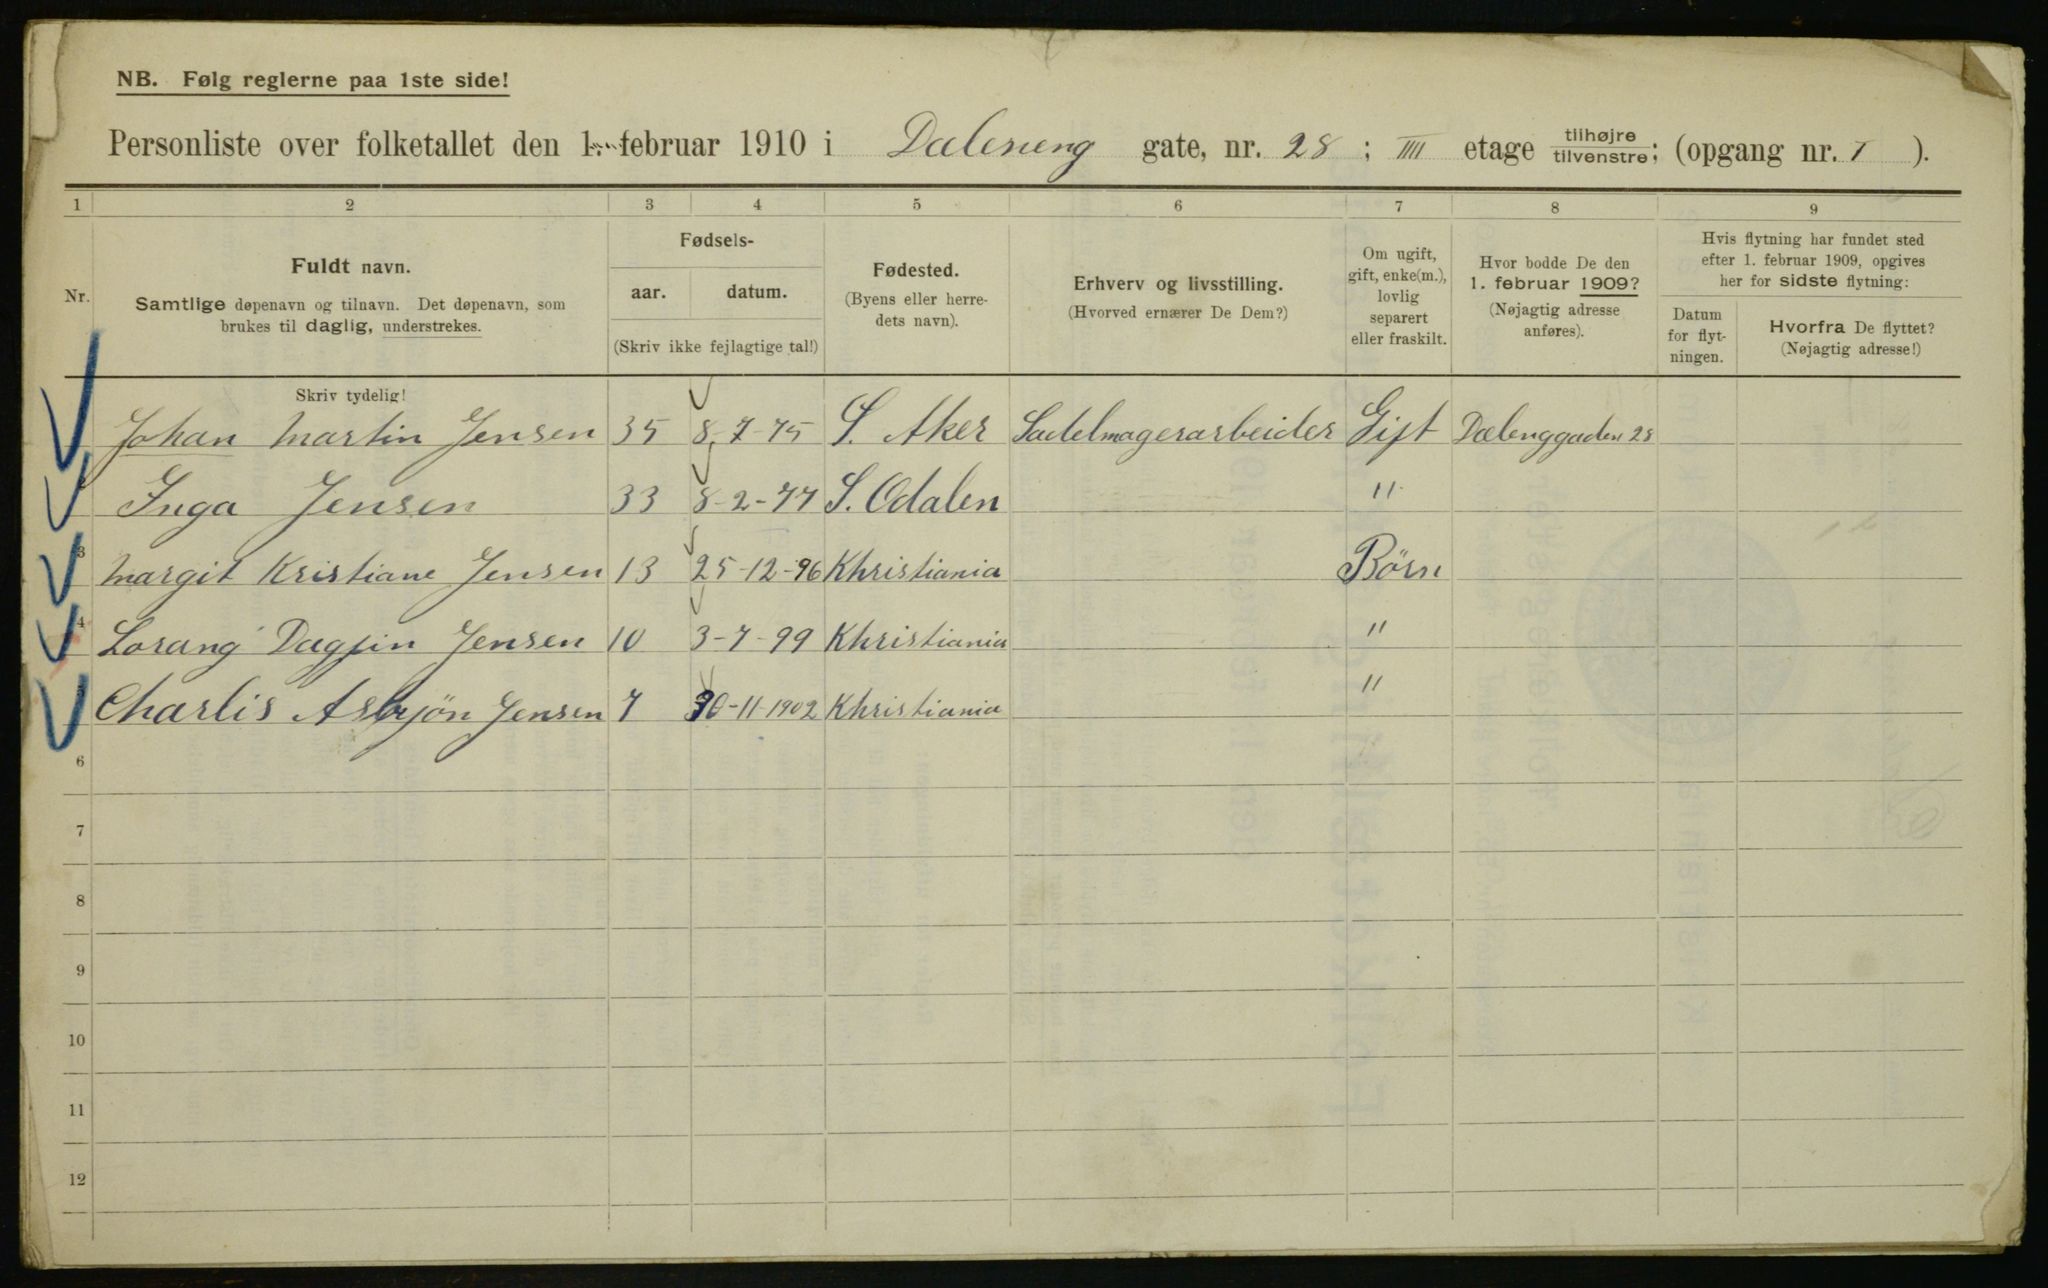 NB. Følg reglerne paa 1ste side!
Personliste over folketallet den 1. februar 1910 i Dæleneng gate, nr. 28 ; IIII etage tilhøjre / tilvenstre; (opgang nr. I ).
1 2 3 4 5 6 7 8 9
Nr.
Fuldt navn.
Samtlige døpenavn og tilnavn. Det døpenavn, som
brukes til daglig, understrekes.
Skriv tydelig!
Fødsels-
aar. datum.
(Skriv ikke fejlagtige tal!)
Fødested.
(Byens eller herre-
dets navn).
Erhverv og livsstilling.
(Hvorved ernærer De Dem?)
Om ugift,
gift, enke(m.),
lovlig
separert
eller fraskilt.
Hvor bodde De den
1. februar 1909?
(Nøjagtig adresse
anføres).
Hvis flytning har fundet sted
efter 1. februar 1909, opgives
her for sidste flytning:
Datum
for flyt-
ningen.
Hvorfra De flyttet?
(Nøjagtig adresse!)
Johan Martin Jensen 35 8-7-75 S. Aker Sadelmagerarbeider Gift Dælenggaden 28
Inga Jensen 33 8-2-77 S. Odalen "
3 Margit Kristiane Jensen 13 25-12-96 Khristiania Børn
4 Lorang Dagfin Jensen 10 3-7-99 Khristiania "
5 Charlis Asbjön Jensen 7 30-11-1902 Khristiania "
6
7
8
9
10
11
12